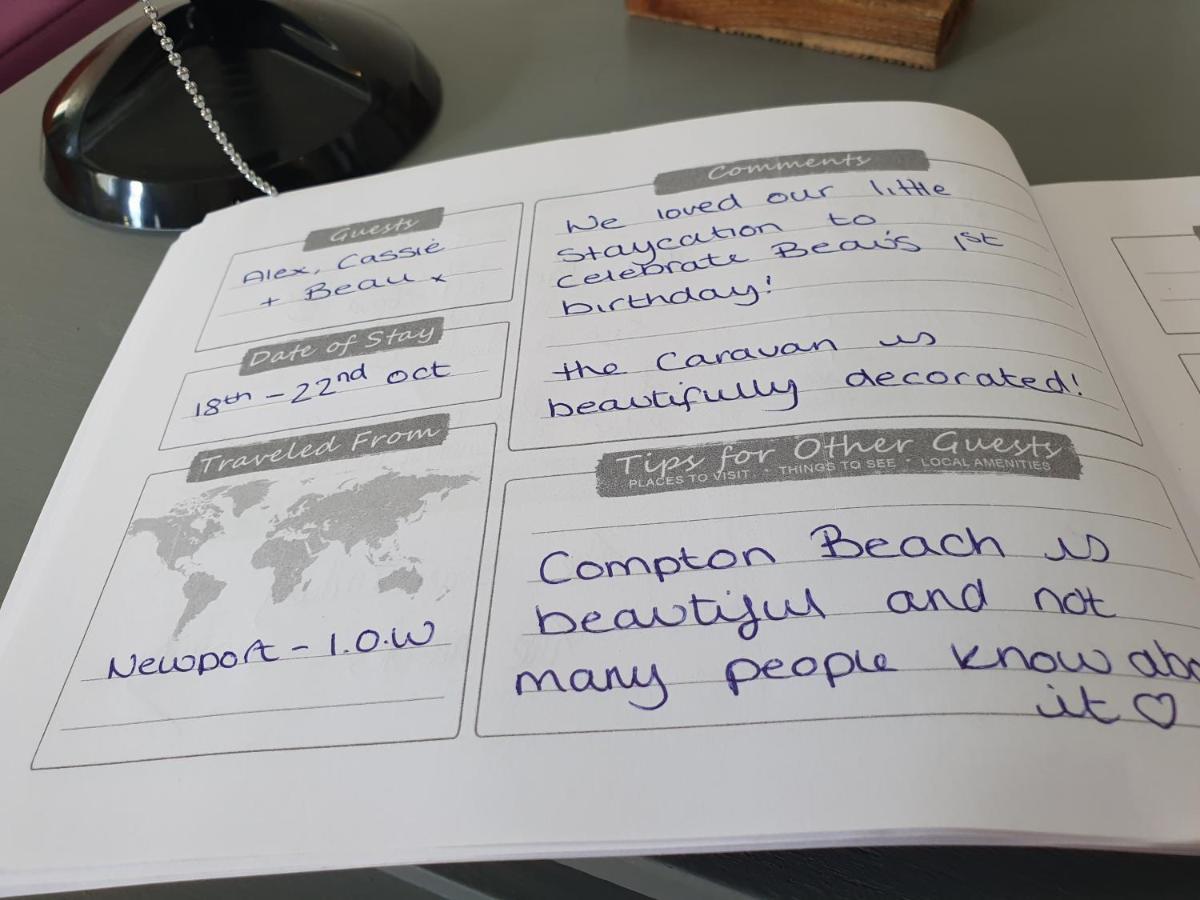 Guests
Alex, Cassie
+ Beau x
Date of Stay
18th - 22nd oct
Traveled From
Newport - I.O.W
Comments
We loved our little
Staycation to
celebrate Beau's 1st
birthday!
the Caravan is
beautifully decorated!
Tips for Other Guests
PLACES TO VISIT • THINGS TO SEE • LOCAL AMENITIES
Compton Beach is
beautiful and not
many people know abo
it ♡